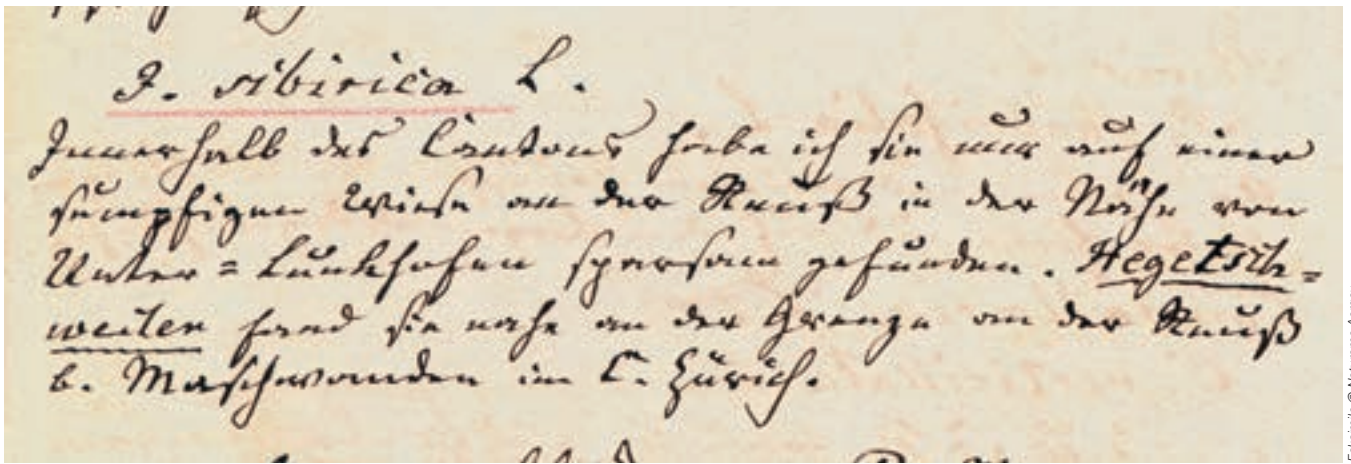 I. sibirica L.
Innerhalb des Cantons habe ich sie nur auf einer
sumpfigen Wiese an der Reuß in der Nähe von
Unter=Lunkhofen sparsam gefunden. Hegetsch=
weiler fand sie nahe an der Grenze an der Reuß
b. Maschwanden im C. Zürich.